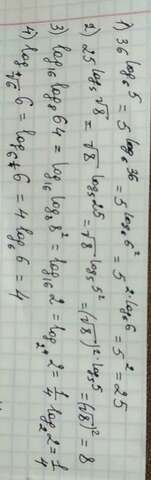 1) 36^log₆5 = 5^log₆36 = 5^log₆6² = 5^2·log₆6 = 5² = 25
2) 25^log₅√8 = √8^log₅25 = √8^log₅5² = (√8)^2·log₅5 = (√8)² = 8
3) log₁₆ log₈ 64 = log₁₆ log₈ 8² = log₁₆ 2 = log₂⁴ 2 = 1/4 log₂ 2 = 1/4
4) log_⁴√6 6 = log_6^¼ 6 = 4 log₆ 6 = 4